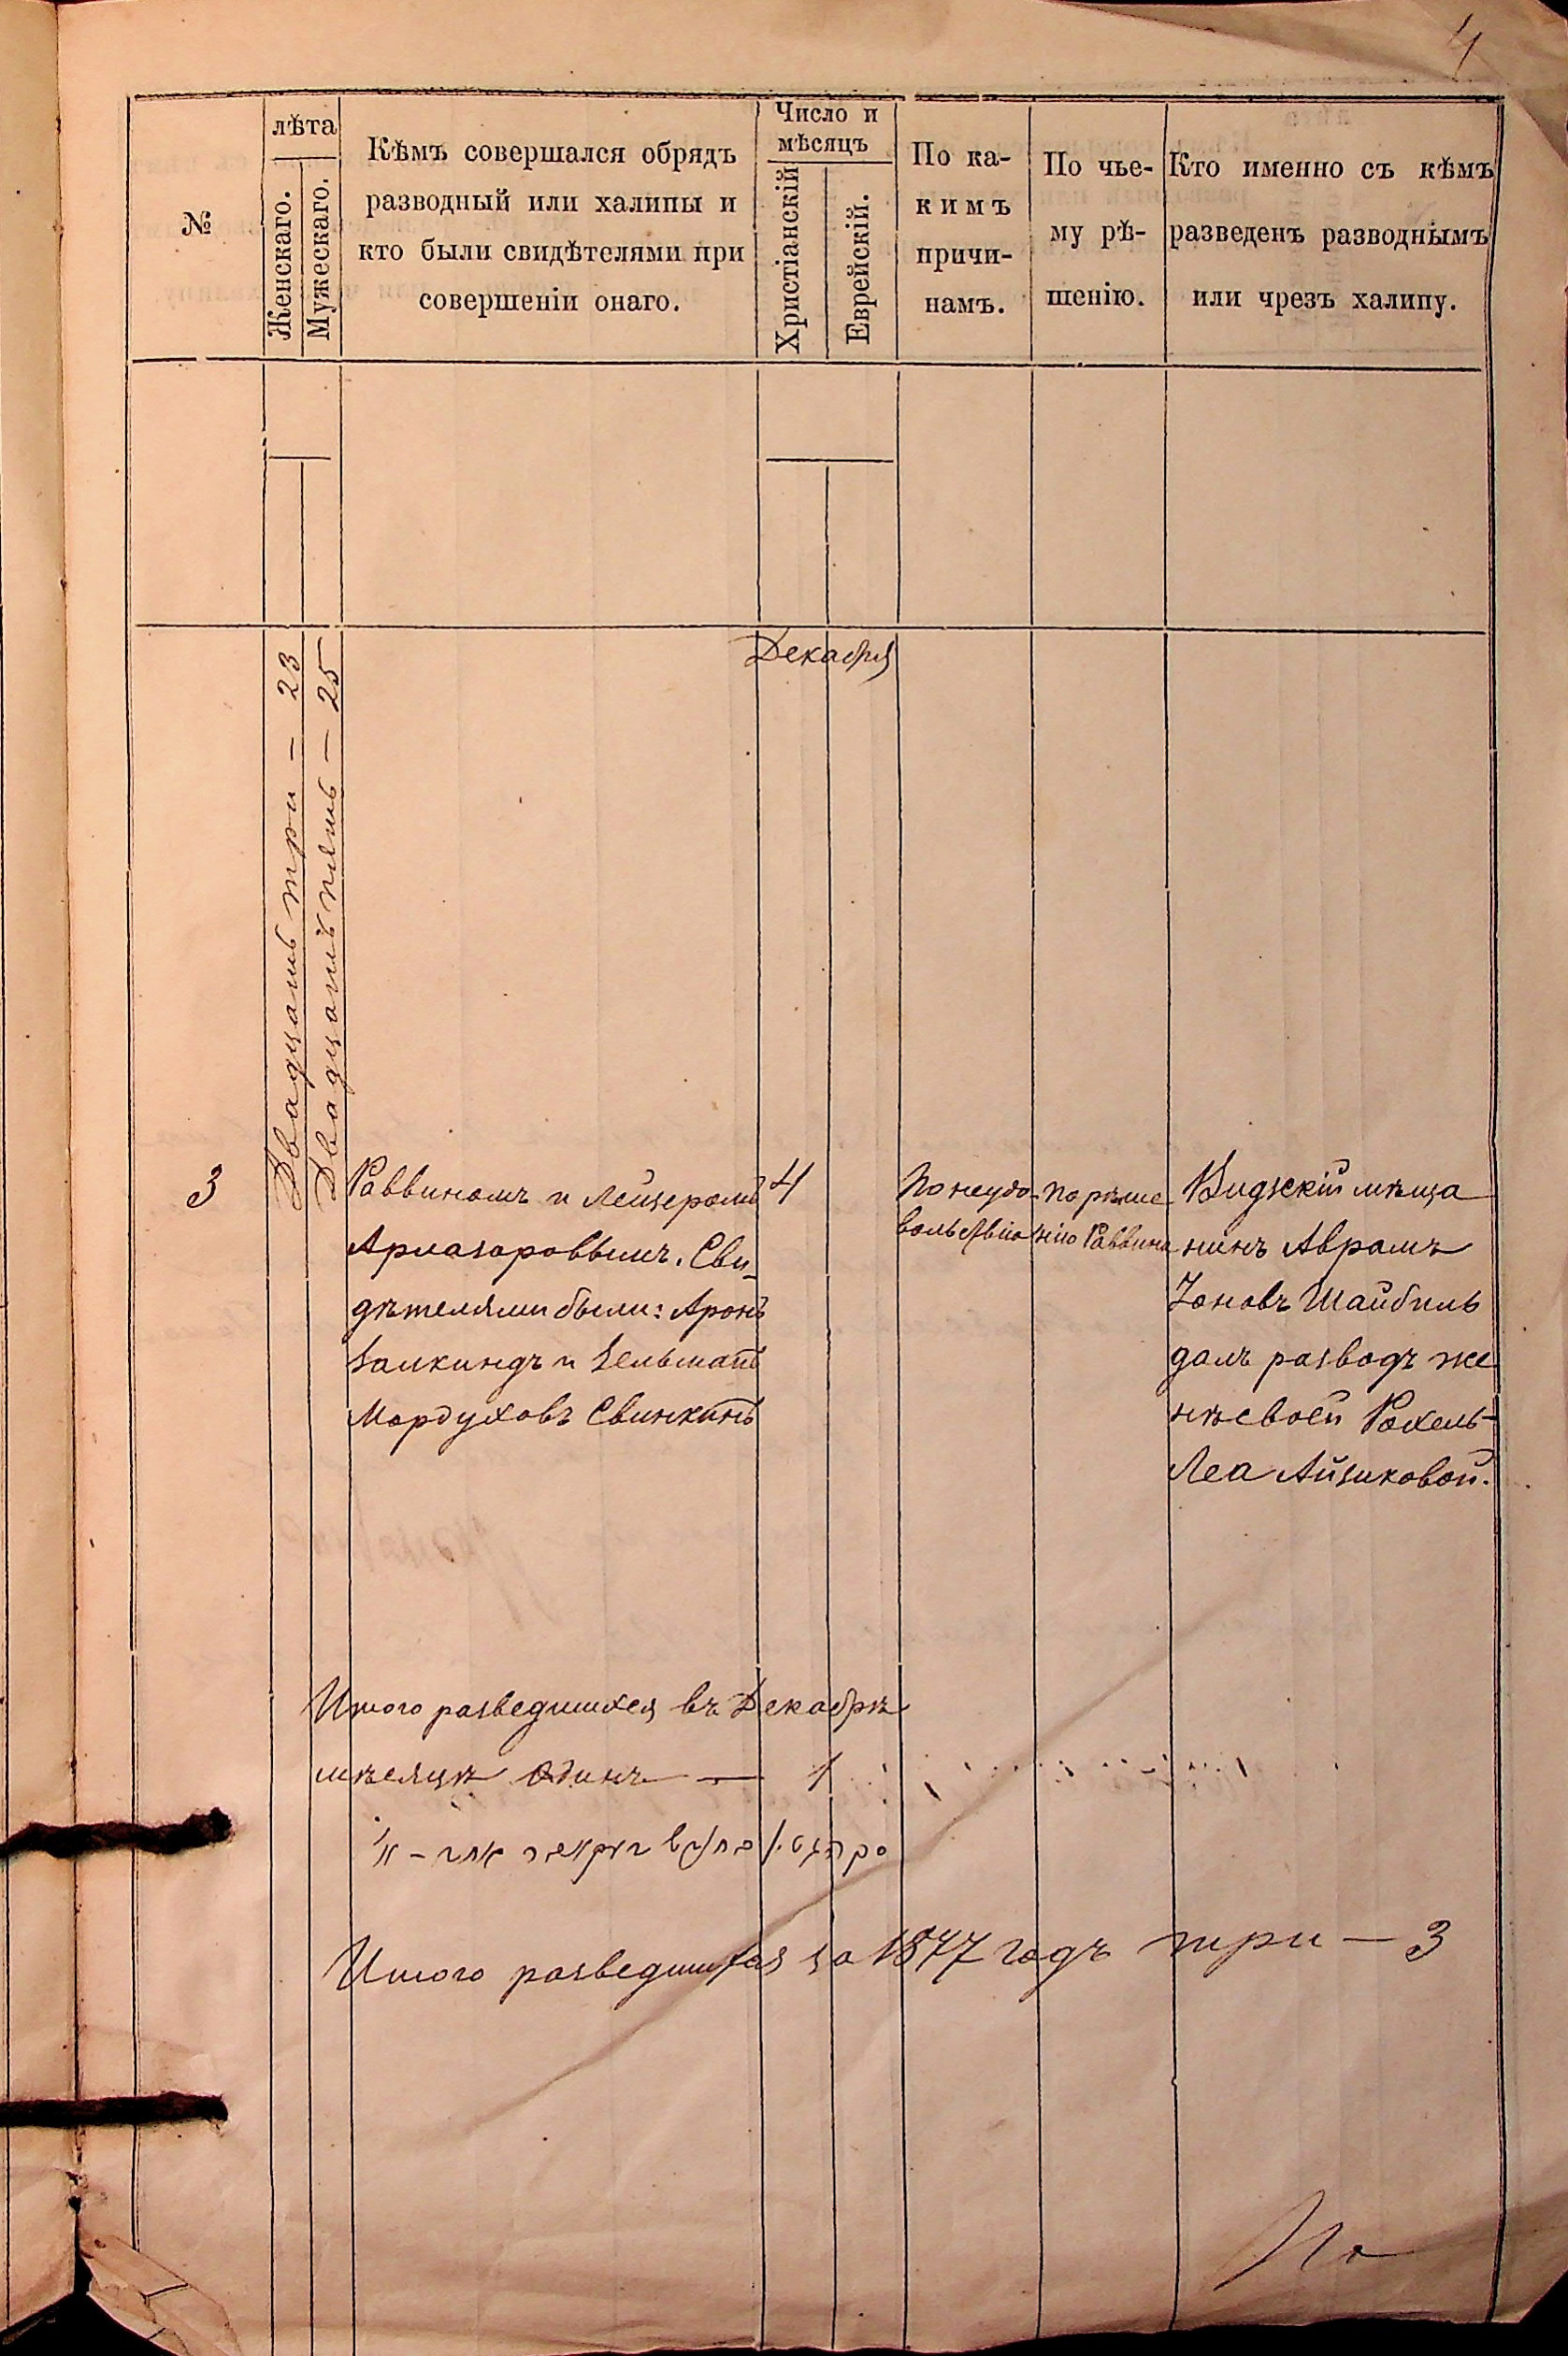 4
№
лѣта
Женскаго.
Мужескаго.
Кѣмъ совершался обрядъ
разводный или халипы и
кто были свидѣтелями при
совершеніи онаго.
Число и
мѣсяцъ
Христіанскій
Еврейскій.
По ка-
кимъ
причи-
намъ.
По чье-
му рѣ-
шенію.
Кто именно съ кѣмъ
разведенъ разводнымъ
или чрезъ халипу.
Декабря
3
Двадцать три — 23
Двадцать пять — 25
Раввиномъ и Лейзеромъ
Сви-
дѣтелями были: Аронъ
Залкиндъ и Зельманъ
Мордуховъ Свинкинъ
4
По неудо-
вольствію
по рѣше
нію Раввина
Видзскій мѣща
нинъ Абрамъ
Іоновъ Шайбиль
далъ разводъ же
нѣ своей Рохель-
Леа Айзиковой.
Итого разведшихся въ Декабрѣ
мѣсяцѣ одинъ — 1
Итого разведшихся за 1877 годъ три — 3
По